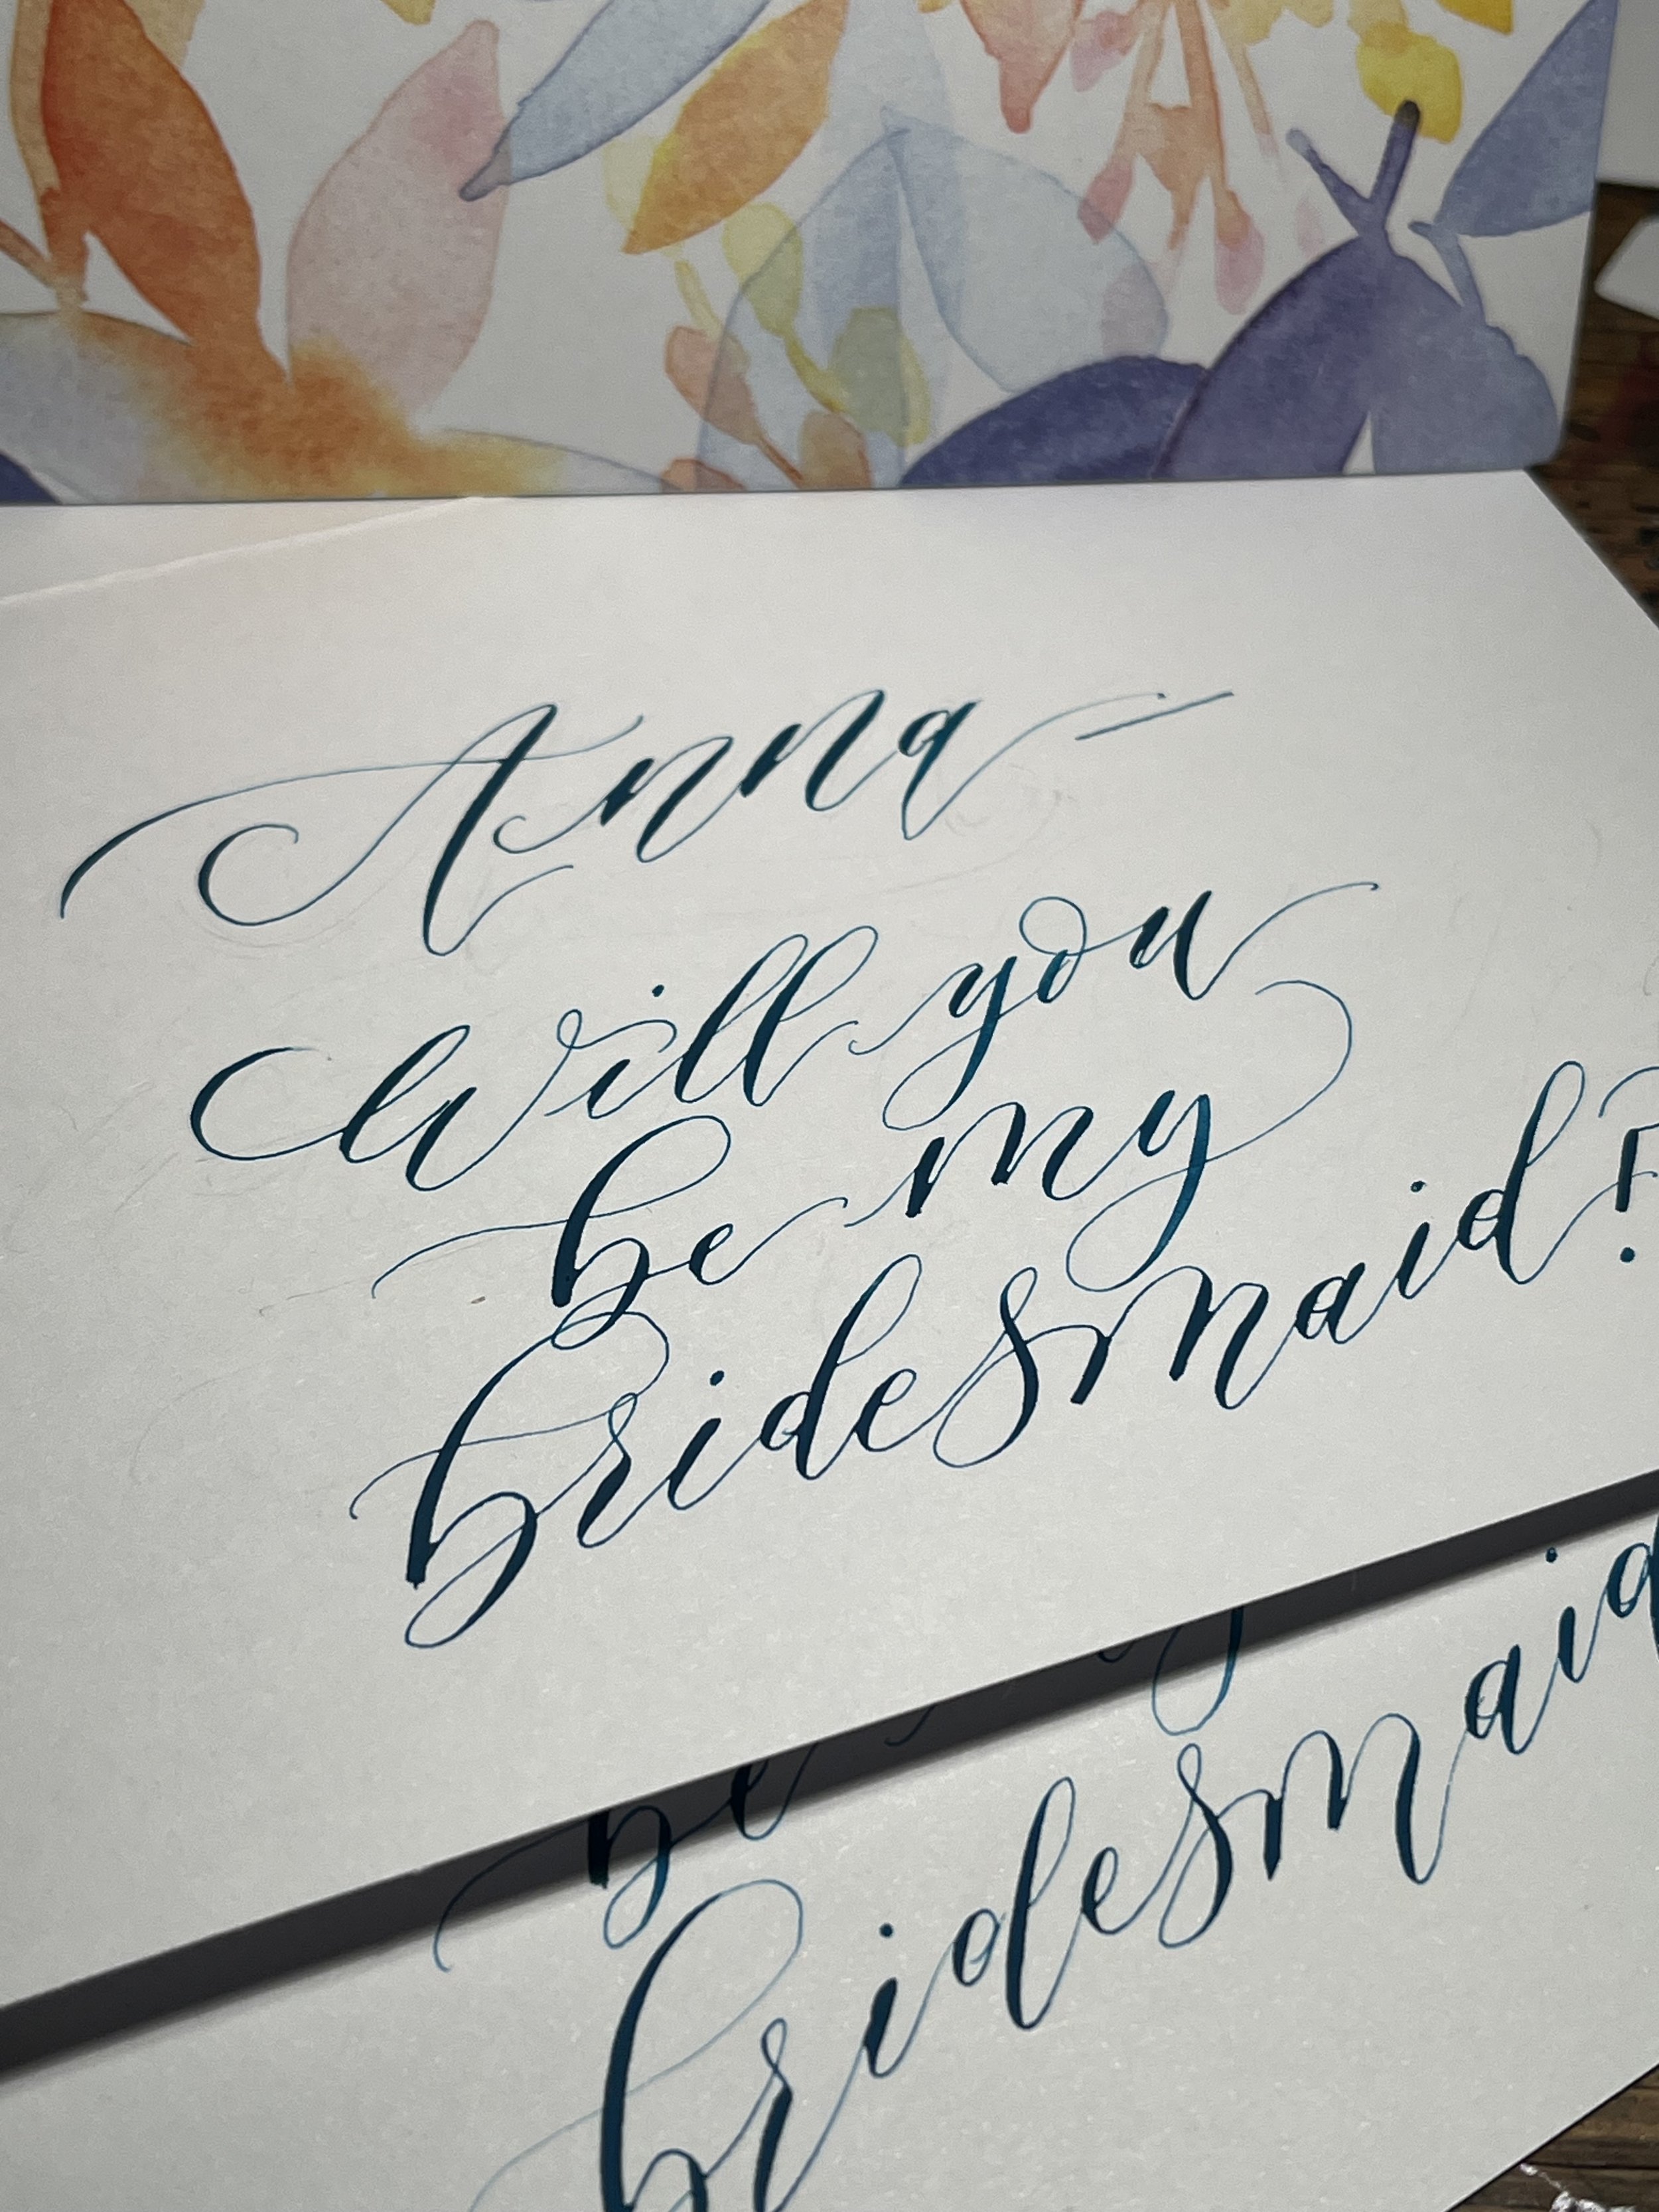 Anna =
Will you
be my
bridesmaid?
be
bridesmaid